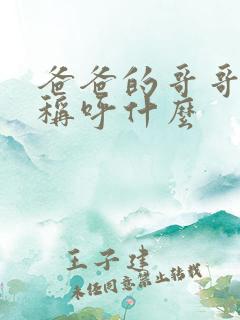 爸爸的哥哥
稱呼什麼
王子建
未经同意禁止转载